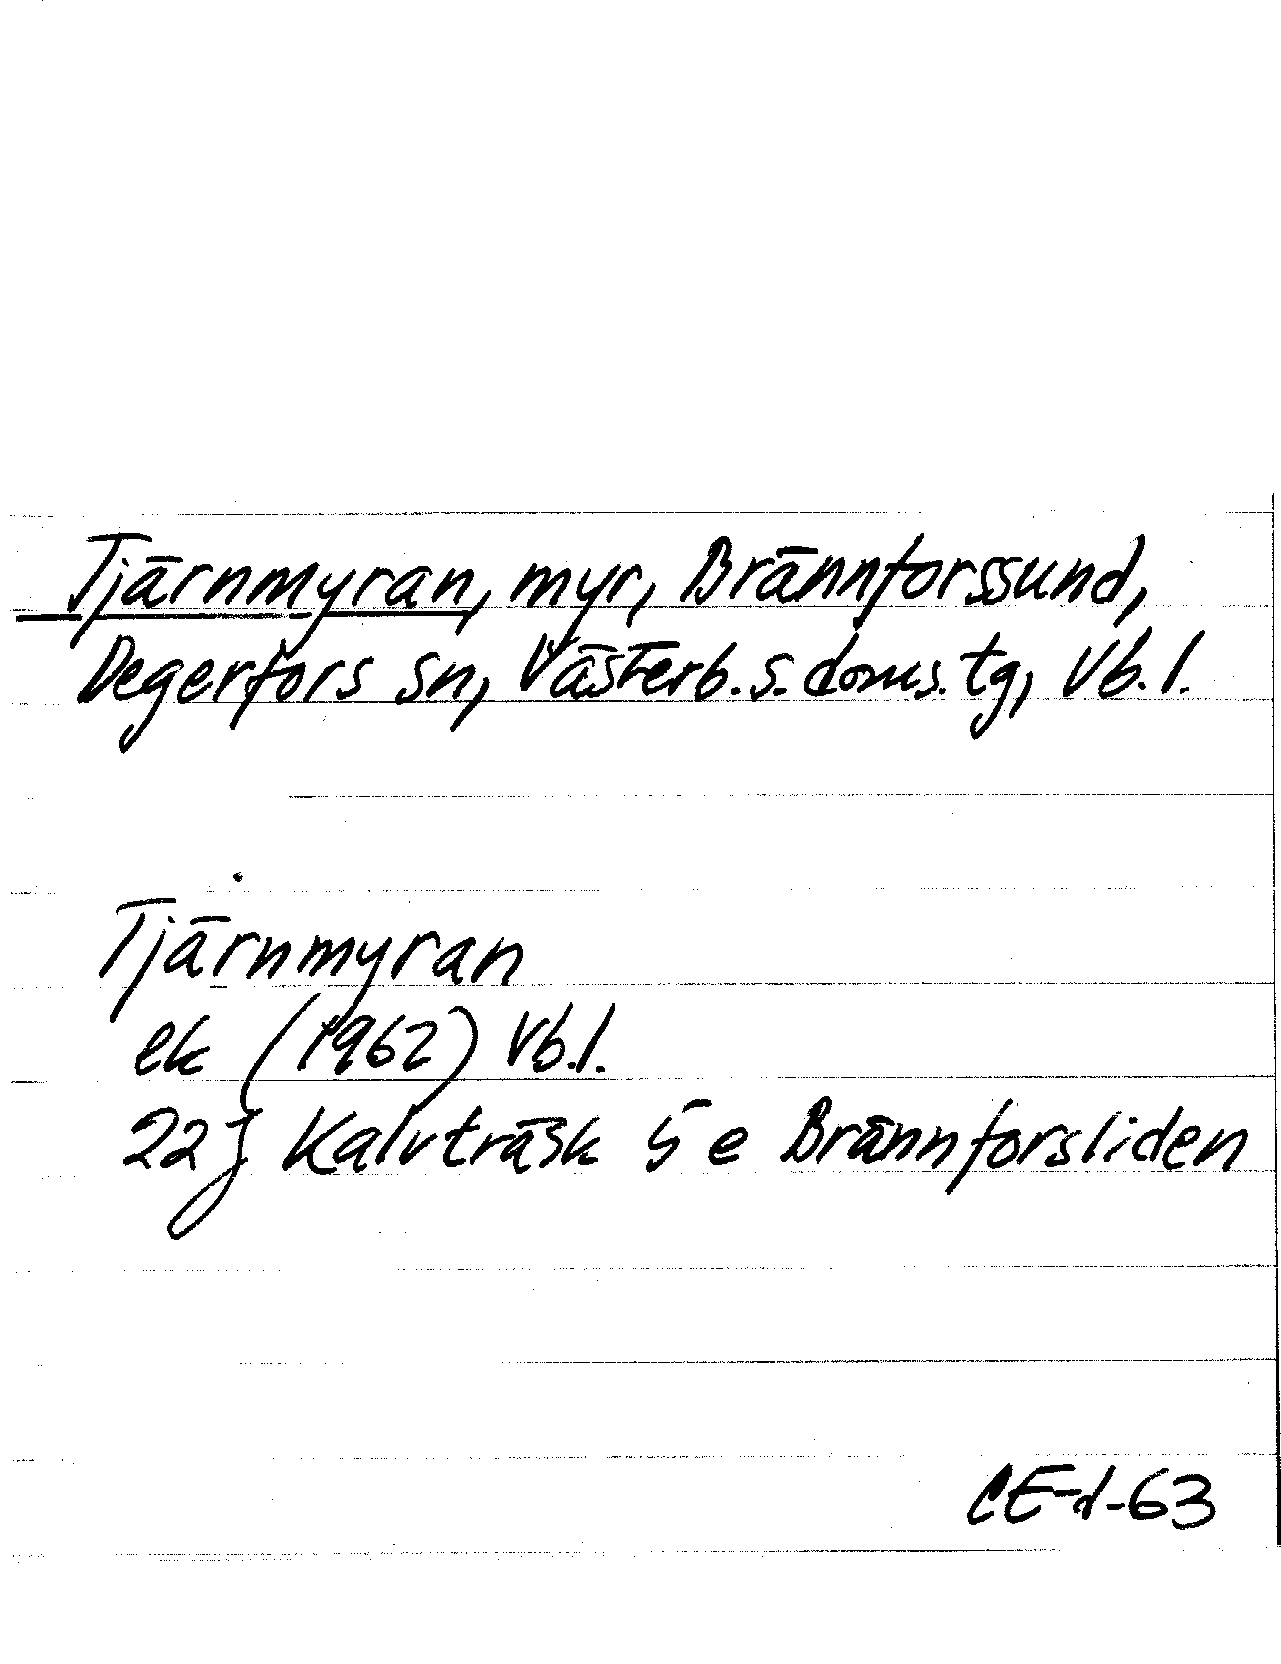 Tjärnmyran, myr, Brännforssund,
Degerfors sn, Västerb. s. doms. tg, Vb. l.
Tjärnmyran
ek (1962) Vb.l.
22 J Kalvträsk 5 e Brännforsliden
CE-d-63